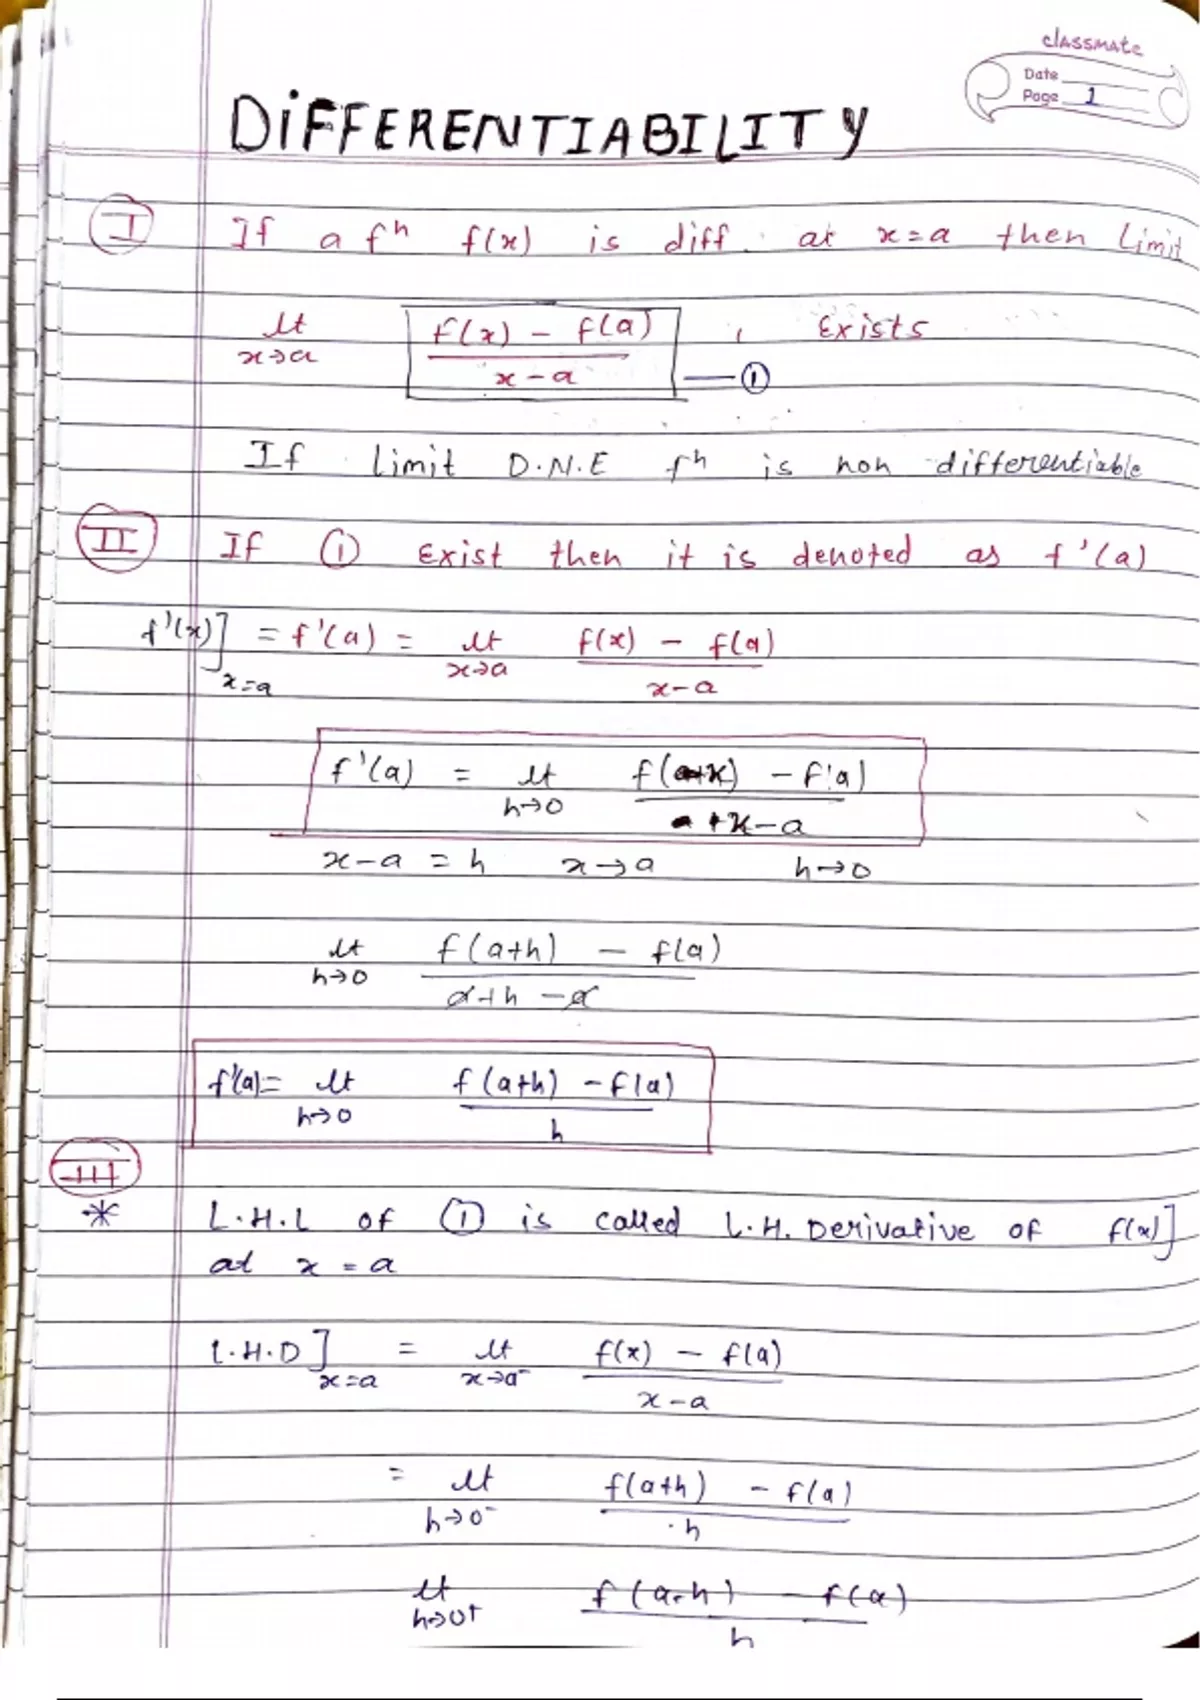 classmate
Date
Page 1
DiFFERENTIABILITY
I If a fⁿ f(x) is diff. at x=a then Limit
lt x→a f(x) - f(a) / x-a , Exists —①
If Limit D.N.E fⁿ is non differentiable
II If ① Exist then it is denoted as f'(a)
f'(x)]x=a = f'(a) = lt x→a f(x) - f(a) / x-a
f'(a) = lt h→0 f(a+x) - f(a) / a+x-a
x-a = h x→a h→0
lt h→0 f(a+h) - f(a) / a+h-a
f'(a)= lt h→0 f(a+h) - f(a) / h
III
* L.H.L of ① is called L.H. Derivative of f(x)]
at x = a
L.H.D]x=a = lt x→a⁻ f(x) - f(a) / x-a
= lt h→0⁻ f(a+h) - f(a) / h
lt h→0⁺ f(a-h) - f(a) / h